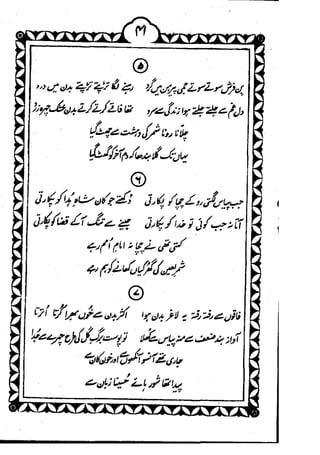 ۳۱
۵
بن فرش سوتے سوتے بچی پیرہن میں گرد رہنے لگا تڑپتے تڑپتے بدن میں درد
دل غم سے جلتے جلتے ہوا زندگی سے سرد تھا فاقے کرتے کرتے بدن خشک چہرہ زرد
چلانا رونا شمر کی دہشت سے چھٹ گیا
یہاں تک گلا بندھا کہ دم آخر کو گھٹ گیا
۶
جب پیاس لگتی رو کے چچا کو پکارتی دکھتے جو کان شاہِ ہدا کو پکارتی
آتا نہ جب کوئی تو خدا کو پکارتی جینے سے تنگ آ کے قضا کو پکارتی
کہتی تھی نے چچا نہ امام امم رہے
شمر لعیں کی گھرکیاں کھانے کو ہم رہے
۷
فاقوں سے رفتہ رفتہ یہ لاغر بدن ہوا اکثر بدن سے خوں بھرا کرتا اترا
آواز بند ضعف سے منہ پیاس سے کھلا تو پوست برگ گل کی طرح چہرے سے جدا
جاری تھے آنسو آنکھوں سے اور خون کان سے
پیدا تھا شور ہائے حسینا زبان سے